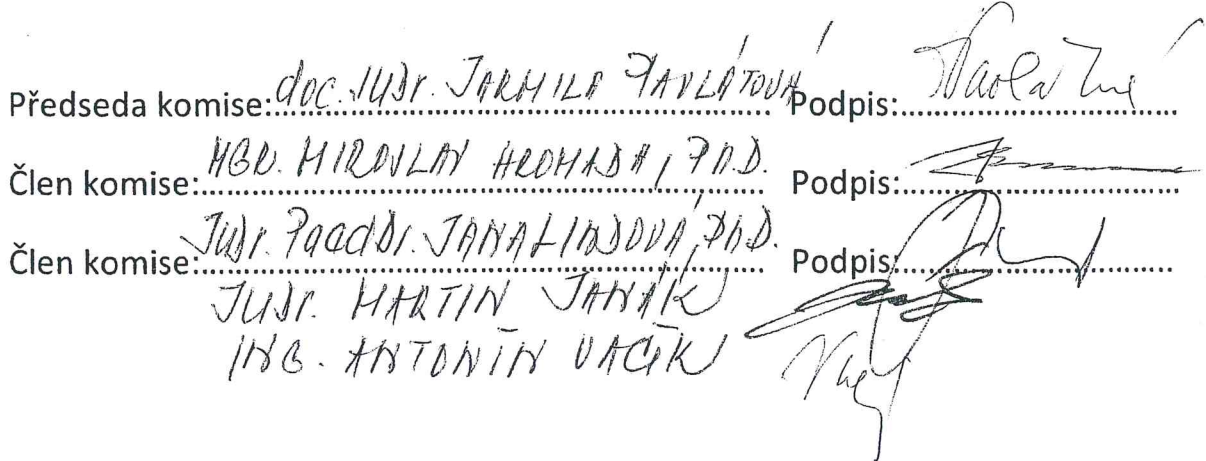 Předseda komise: doc. JUDr. JARMILA PAVLÁTOVÁ Podpis: Pavlátová
Člen komise: MGR. MIROSLAV HROMADA, PH.D. Podpis:
Člen komise: JUDr. PaedDr. JANA LINDOVÁ, PhD. Podpis:
JUDr. MARTIN JANÁK
ING. ANTONÍN VACÍK